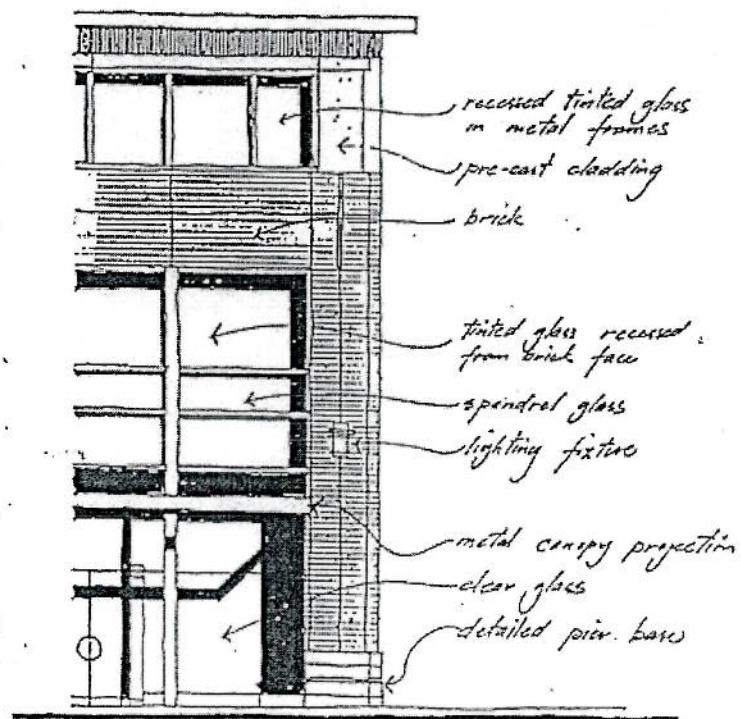 recessed tinted glass
in metal frames
pre-cast cladding
brick
tinted glass recessed
from brick face
spandrel glass
lighting fixture
metal canopy projection
clear glass
detailed pier base